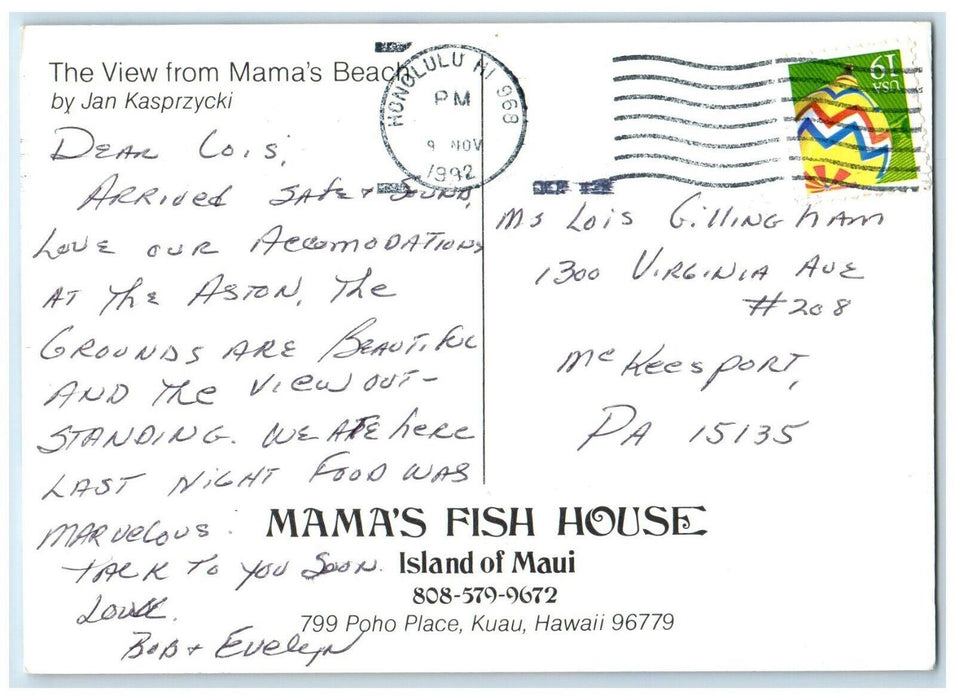 The View from Mama's Beach
by Jan Kasprzycki
HONOLULU HI 968
PM
9 NOV
1992
19 USA
Dear Lois,
Arrived safe + sound,
Love our Accomodations
at the Aston, The
Grounds are Beautiful
and the view out-
standing. We ate here
last night food was
marvelous.
Talk to you soon.
Love.
Bob + Evelyn
Ms Lois Gillingham
1300 Virginia Ave
#208
McKeesport,
PA 15135
MAMA'S FISH HOUSE
Island of Maui
808-579-9672
799 Poho Place, Kuau, Hawaii 96779